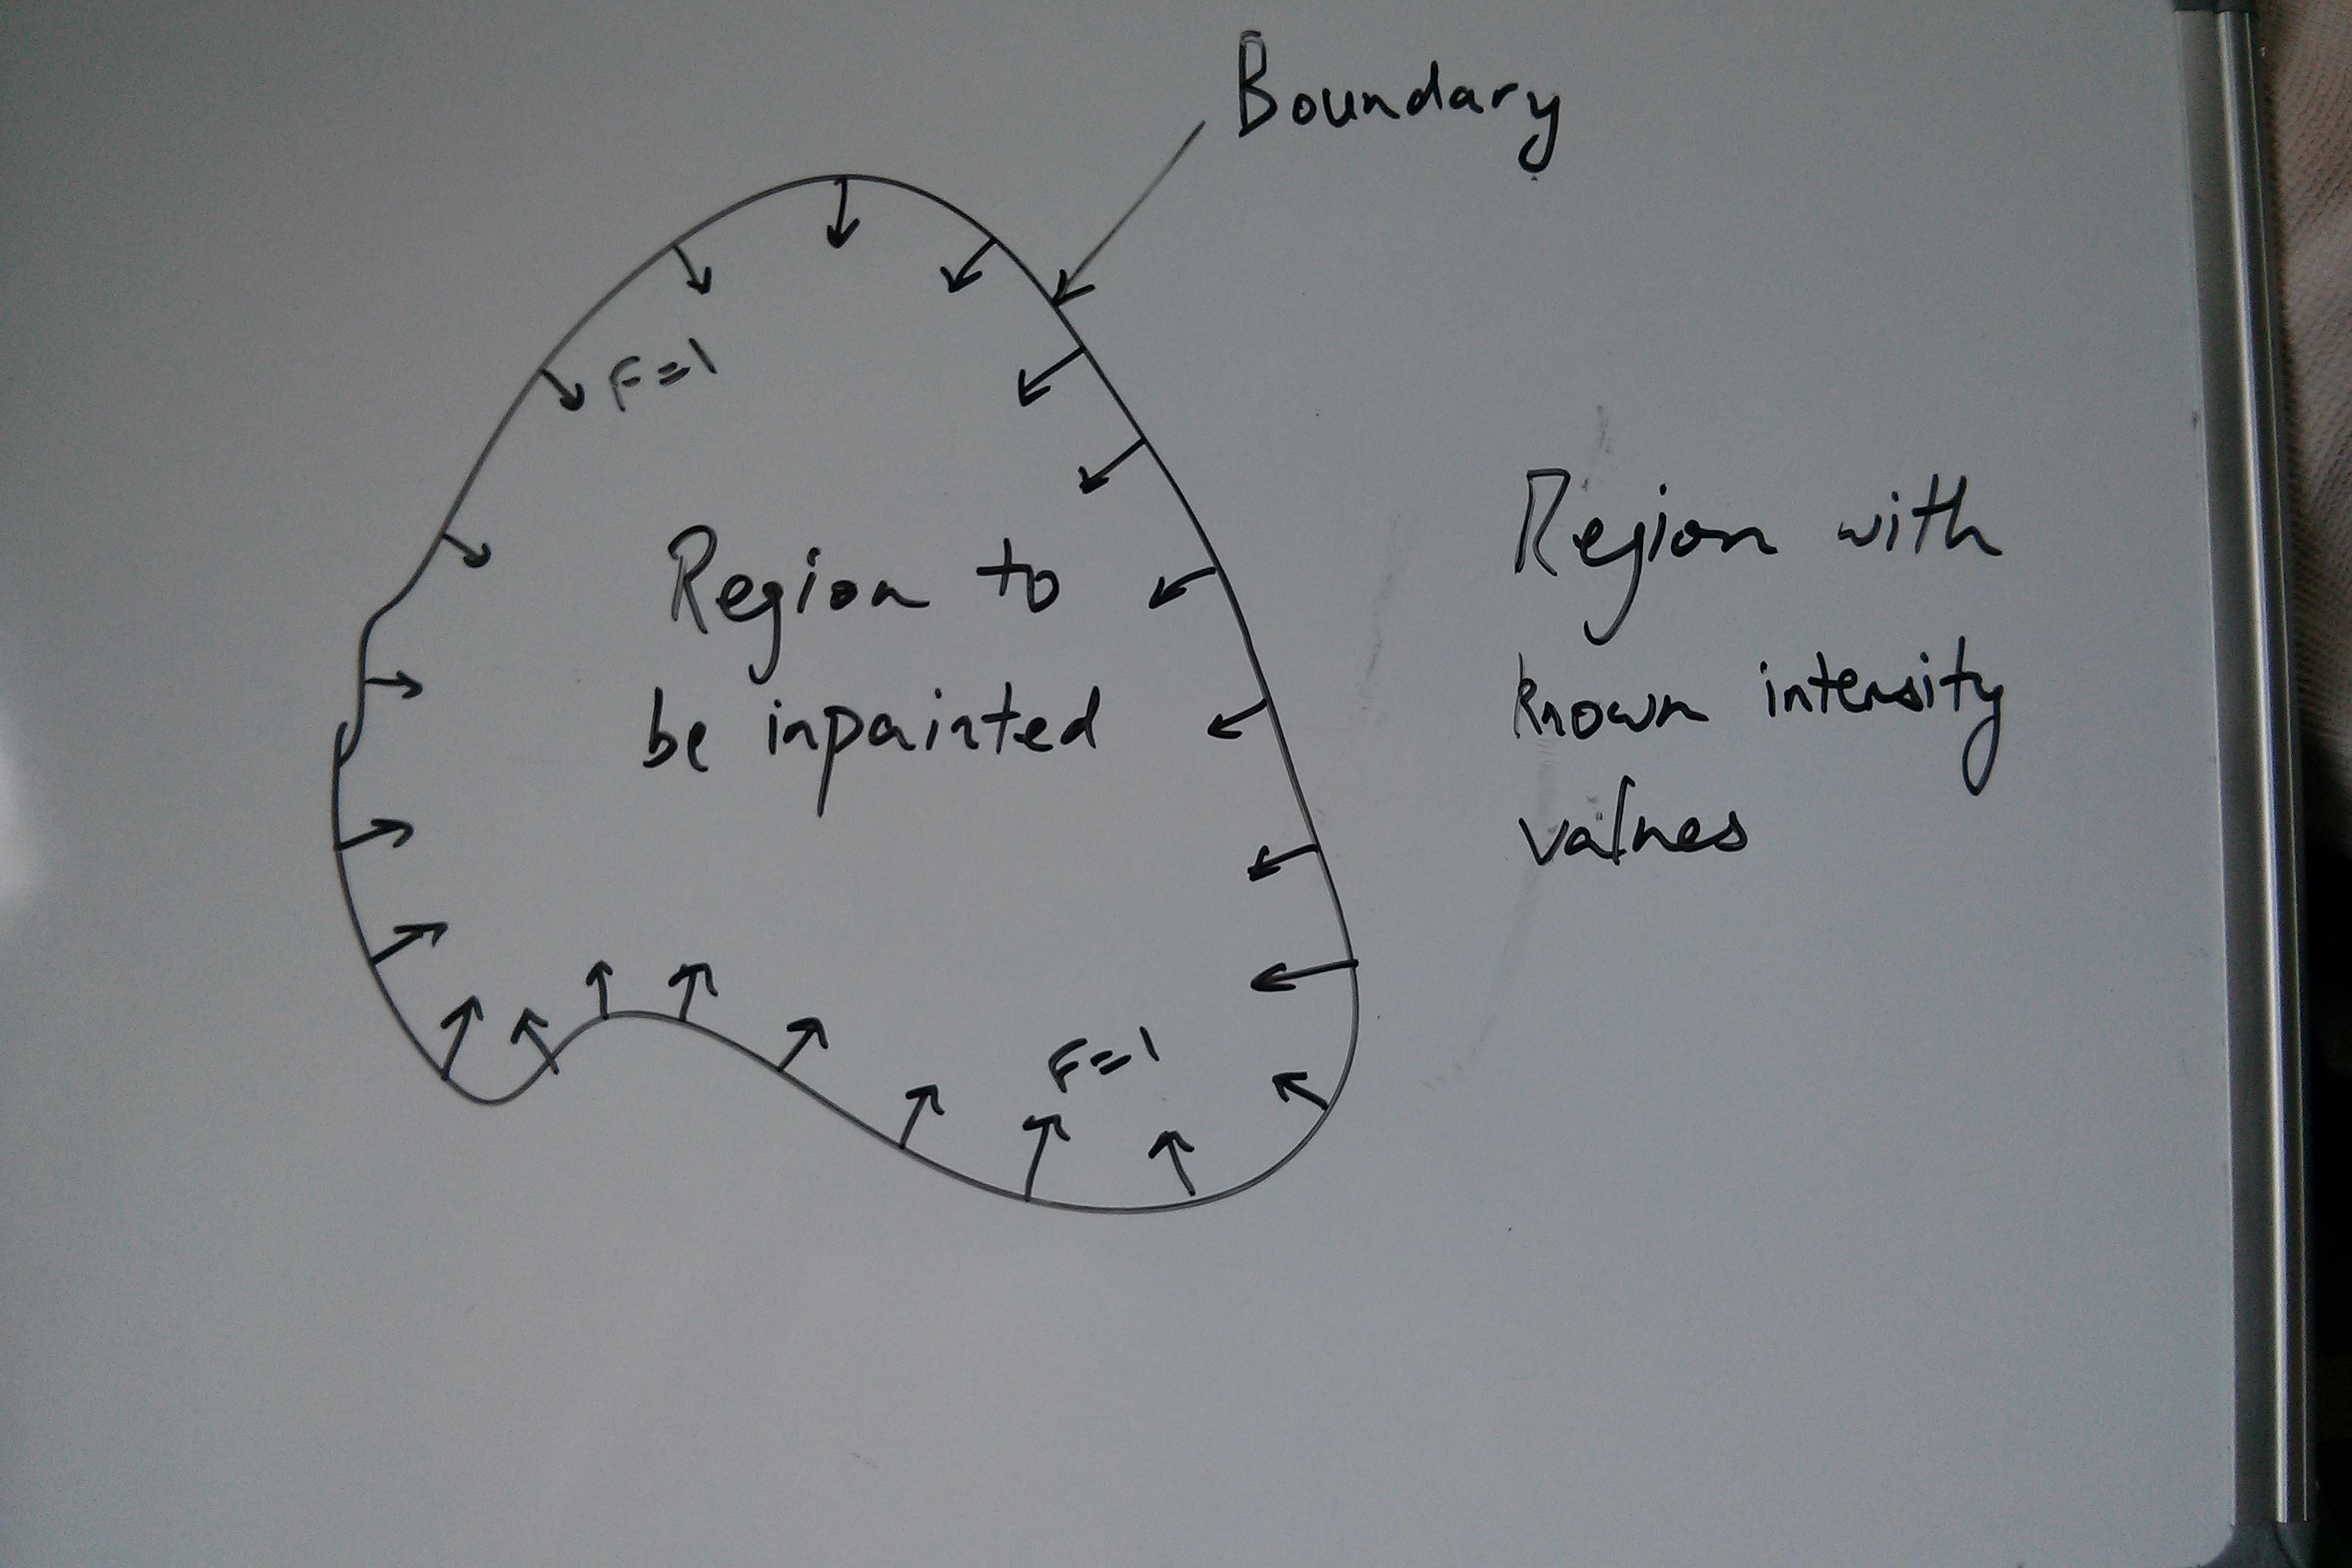 Boundary
F=1
Region to
be inpainted
Region with
known intensity
values
F=1